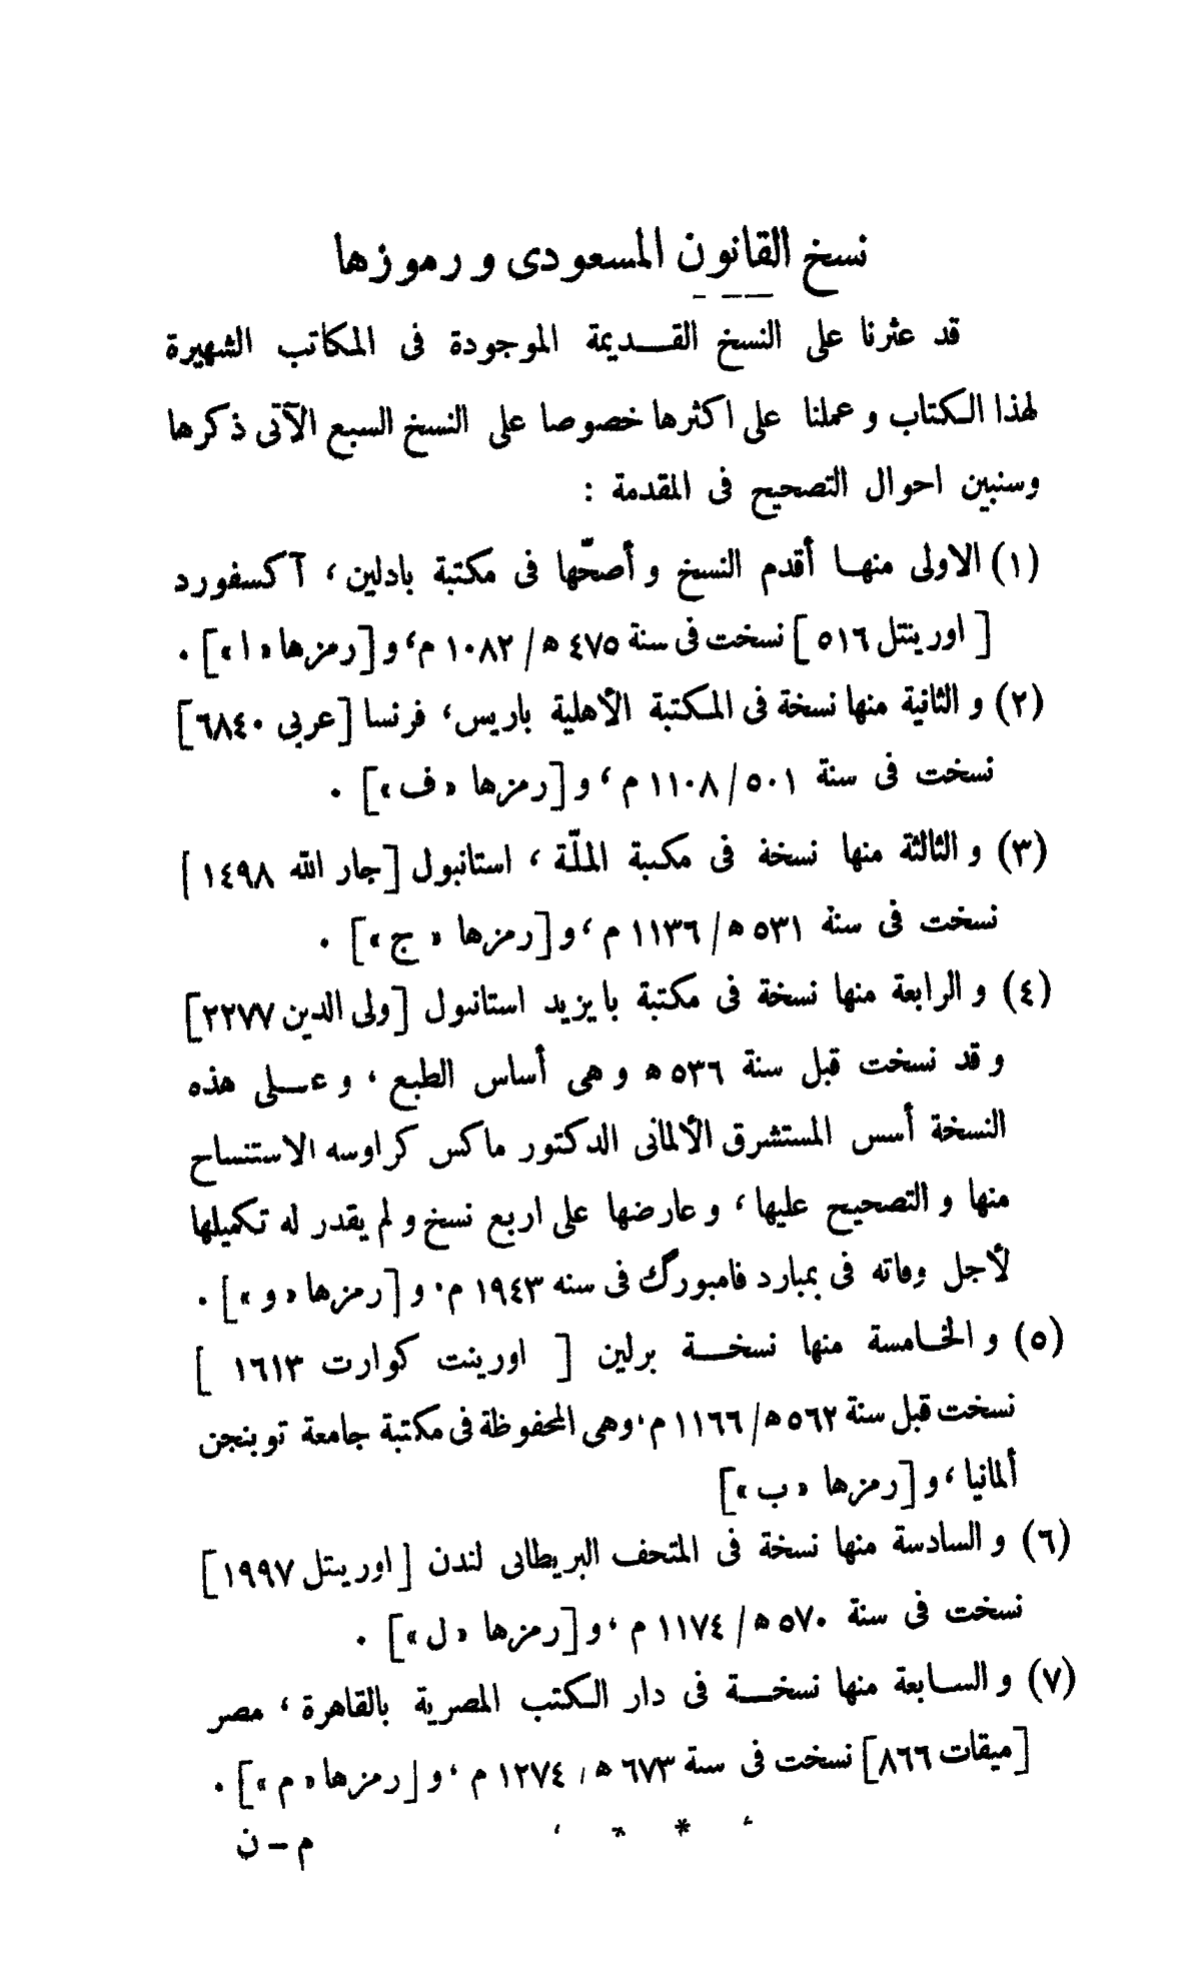 نسخ القانون المسعودى و رموزها
قد عثرنا على النسخ القديمة الموجودة فى المكاتب الشهيرة
لهذا الكتاب و عملنا على اكثرها خصوصا على النسخ السبع الآتى ذكرها
وسنبين احوال التصحيح فى المقدمة :
(١) الاولى منها أقدم النسخ و أصحّها فى مكتبة بادلين ، آكسفورد
[ اورينتل ٥١٦ ] نسخت فى سنة ٤٧٥ ھ / ١٠٨٢ م، و [رمزها « ا »] .
(٢) و الثانية منها نسخة فى المكتبة الأهلية باريس، فرنسا [عربى ٦٨٤٠]
نسخت فى سنة ٥٠١ / ١١٠٨ م ، و [رمزها « ف »] .
(٣) و الثالثة منها نسخة فى مكتبة الملّة ، استانبول [جار الله ١٤٩٨ ]
نسخت فى سنة ٥٣١ ھ / ١١٣٦ م ، و [رمزها « ج »] .
(٤) و الرابعة منها نسخة فى مكتبة بايزيد استانبول [ولى الدين ٢٢٧٧]
و قد نسخت قبل سنة ٥٣٦ ھ و هى أساس الطبع ، و على هذه
النسخة أسس المستشرق الألمانى الدكتور ماكس كراوسه الاستنساخ
منها و التصحيح عليها ، و عارضها على اربع نسخ و لم يقدر له تكميلها
لأجل وفاته فى بمبارد فامبورگ فى سنه ١٩٤٣ م، و [رمزها « و »] .
(٥) و الخامسة منها نسخة برلين [ اورينت كوارت ١٦١٣ ]
نسخت قبل سنة ٥٦٢ ھ / ١١٦٦ م، وهى المحفوظة فى مكتبة جامعة توبنجن
ألمانيا ، و [رمزها « ب »]
(٦) و السادسة منها نسخة فى المتحف البريطانى لندن [اورينتل ١٩٩٧]
نسخت فى سنة ٥٧٠ ھ / ١١٧٤ م ، و [رمزها « ل »] .
(٧) و السابعة منها نسخة فى دار الكتب المصرية بالقاهرة ، مصر
[ميقات ٨٦٦] نسخت فى سنة ٦٧٣ ھ / ١٢٧٤ م ، و [رمزها « م »] .
م – ن